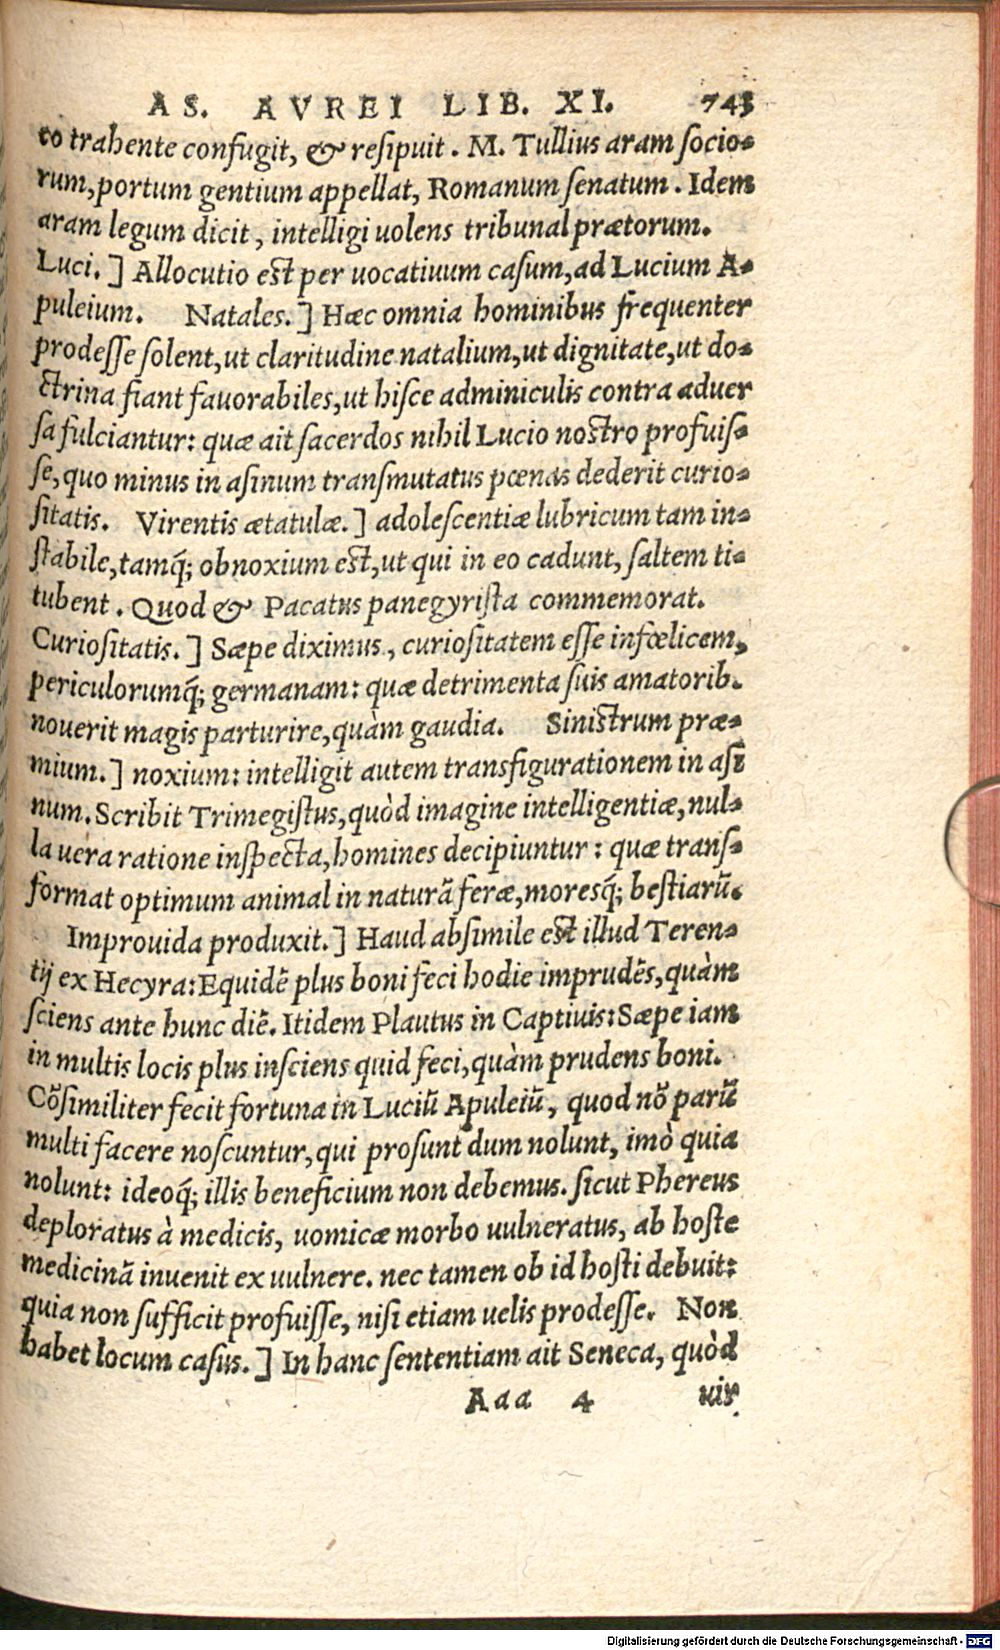 AS. AVREI LIB. XI. 743
to trahente confugit, & resipuit. M. Tullius aram socio-
rum, portum gentium appellat, Romanum senatum. Idem
aram legum dicit, intelligi uolens tribunal prætorum.
Luci.] Allocutio est per uocatiuum casum, ad Lucium A-
puleium. Natales.] Hæc omnia hominibus frequenter
prodesse solent, ut claritudine natalium, ut dignitate, ut do-
ctrina fiant fauorabiles, ut hisce adminiculis contra aduer
sa fulciantur: quæ ait sacerdos nihil Lucio nostro profuis-
se, quo minus in asinum transmutatus pœnas dederit curio-
sitatis. Virentis ætatulæ.] adolescentiæ lubricum tam in-
stabile, tamq́; obnoxium est, ut qui in eo cadunt, saltem ti-
tubent. Quod & Pacatus panegyrista commemorat.
Curiositatis.] Sæpe diximus, curiositatem esse infœlicem,
periculorumq́; germanam: quæ detrimenta suis amatorib.
nouerit magis parturire, quàm gaudia. Sinistrum præ-
mium.] noxium: intelligit autem transfigurationem in asi
num. Scribit Trimegistus, quòd imagine intelligentiæ, nul-
la uera ratione inspecta, homines decipiuntur: quæ trans-
format optimum animal in naturã feræ, moresq́; bestiarũ.
Improuida produxit.] Haud absimile est illud Teren-
tij ex Hecyra: Equidẽ plus boni feci hodie imprudẽs, quàm
sciens ante hunc diẽ. Itidem Plautus in Captiuis: Sæpe iam
in multis locis plus insciens quid feci, quàm prudens boni.
Cõsimiliter fecit fortuna in Luciũ Apuleiũ, quod nõ parũ
multi facere noscuntur, qui prosunt dum nolunt, imò quia
nolunt: ideoq́; illis beneficium non debemus. sicut Phereus
deploratus à medicis, uomicæ morbo uulneratus, ab hoste
medicinã inuenit ex uulnere. nec tamen ob id hosti debuit:
quia non sufficit profuisse, nisi etiam uelis prodesse. Non
habet locum casus.] In hanc sententiam ait Seneca, quòd
Aaa 4 uir
Digitalisierung gefördert durch die Deutsche Forschungsgemeinschaft - DFG